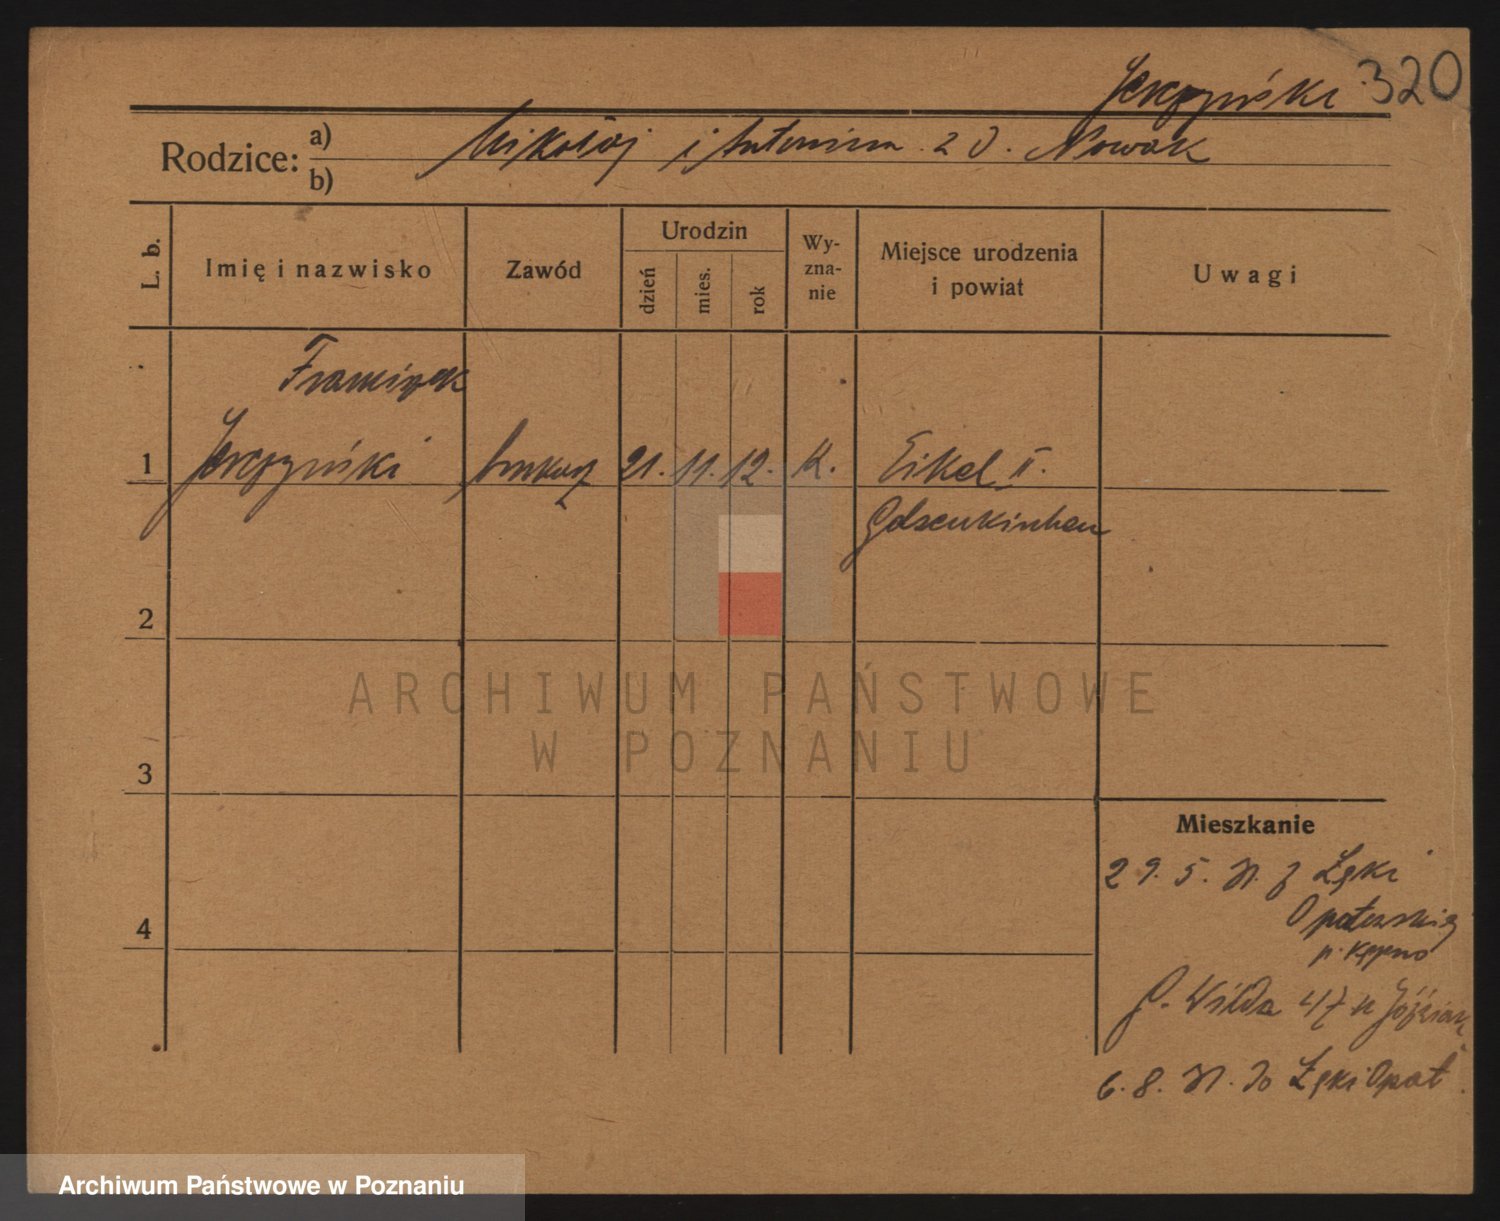 320
Rodzice: a) Mikołaj i Antonina z d. Nowak
b)
L. b.
Imię i nazwisko
Zawód
Urodzin
dzień
mies.
rok
Wy-
zna-
nie
Miejsce urodzenia
i powiat
Uwagi
Franciszek
1 21. 11. 12. K. Eikel II.
Gelsenkirchen
2
3
4
ARCHIWUM PAŃSTWOWE
W POZNANIU
Mieszkanie
29. 5. 31. z Łęki
Opatowskiej
p. Kępno
G. Wilda 47 u
6. 8. 31. do Łęki Opat.
Archiwum Państwowe w Poznaniu